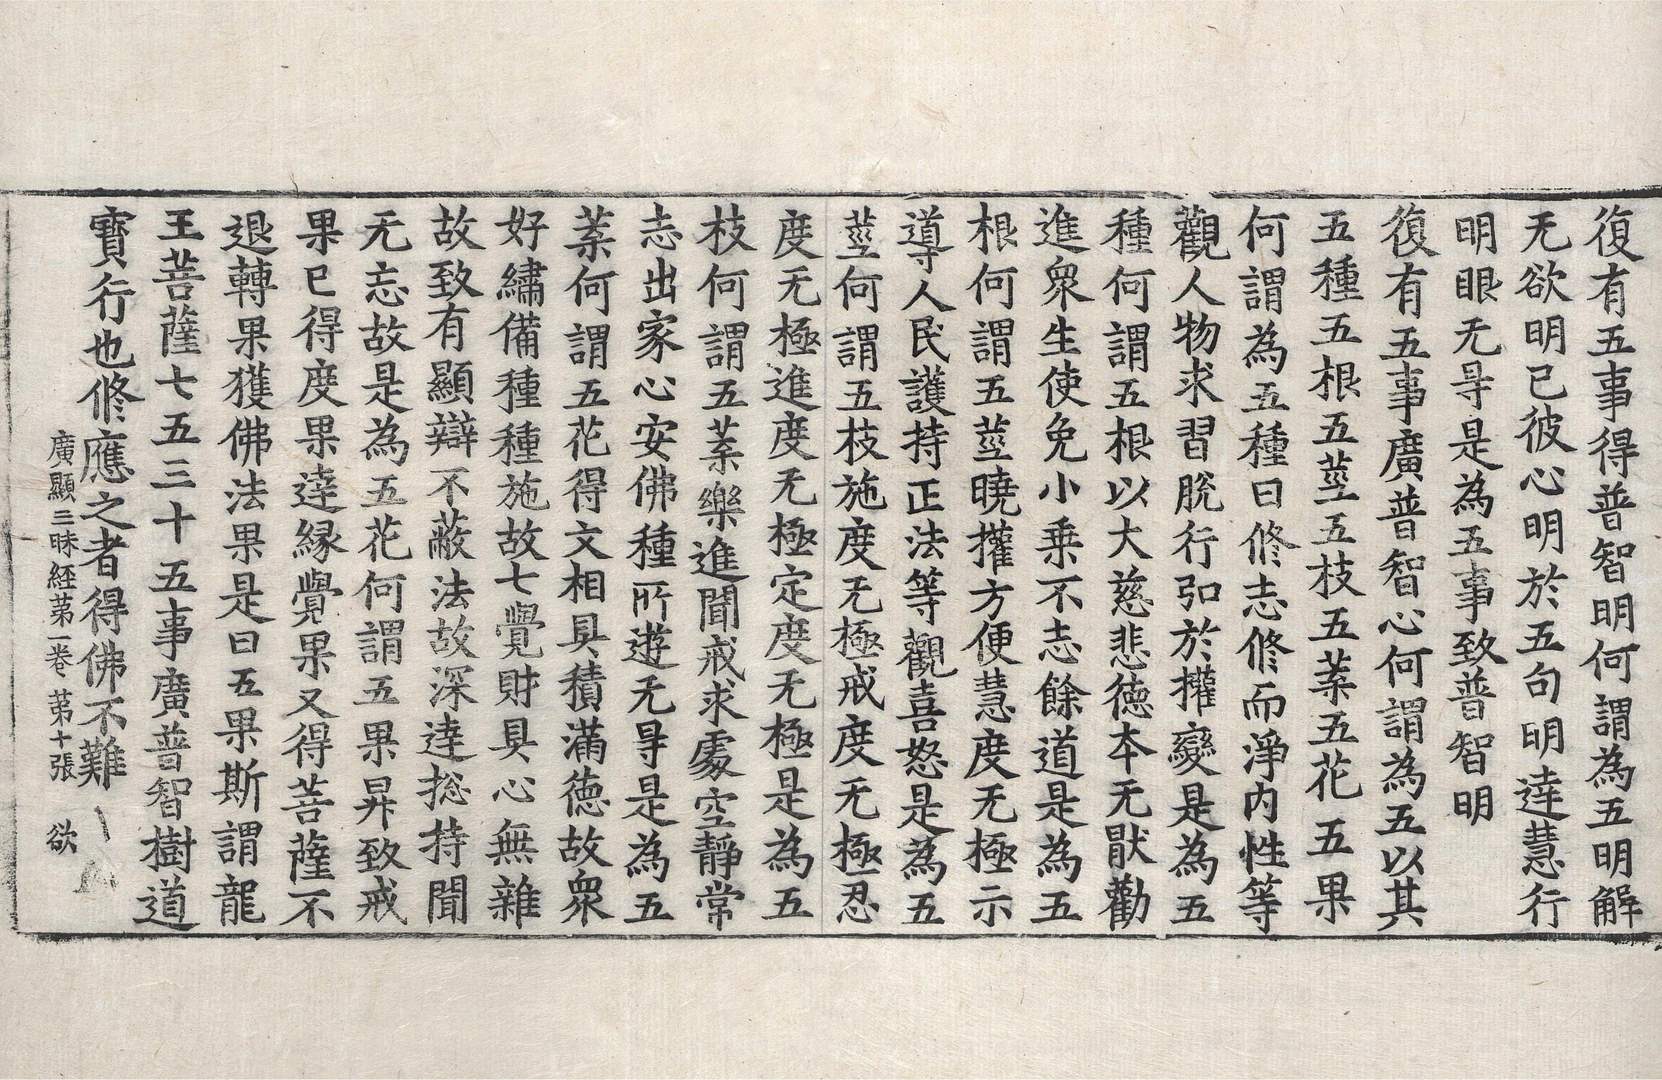 復有五事得普智明何謂為五明解
无欲明已彼心明於五句明達慧行
明眼无㝵是為五事致普智明
復有五事廣普智心何謂為五以其
五種五根五莖五枝五葉五花五果
何謂為五種曰修志修而淨内性等
觀人物求習脫行弘於攉變是為五
種何謂五根以大慈悲德本无猒勸
進衆生使免小乗不志餘道是為五
根何謂五莖曉攉方便慧度无極示
導人民護持正法等觀喜怒是為五
莖何謂五枝施度无極戒度无極忍
度无極進度无極定度无極是為五
枝何謂五葉樂進聞戒求處空静常
志出家心安佛種所遊无㝵是為五
葉何謂五花得文相具積滿德故衆
好繡備種種施故七覺財具心無雜
故致有顯辯不蔽法故深達捴持聞
无忘故是為五花何謂五果昇致戒
果已得度果達縁覺果又得菩薩不
退轉果獲佛法果是曰五果斯謂龍
王菩薩七五三十五事廣普智樹道
寶行也修應之者得佛不難
廣顯三昧経苐一卷 苐十張 欲